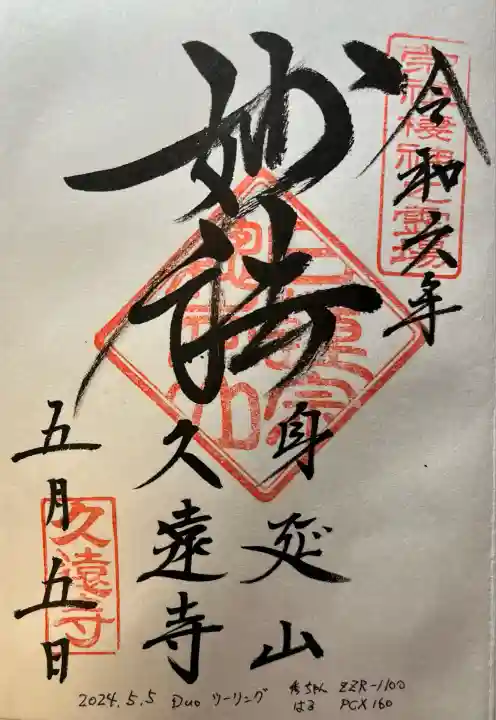 令和六年
宗祖棲神之霊場
妙法
日蓮宗
身延山
久遠寺
五月五日
久遠寺
2024.5.5 Duo ツーリング
秀ちゃん ZZR-1100
はる PCX160